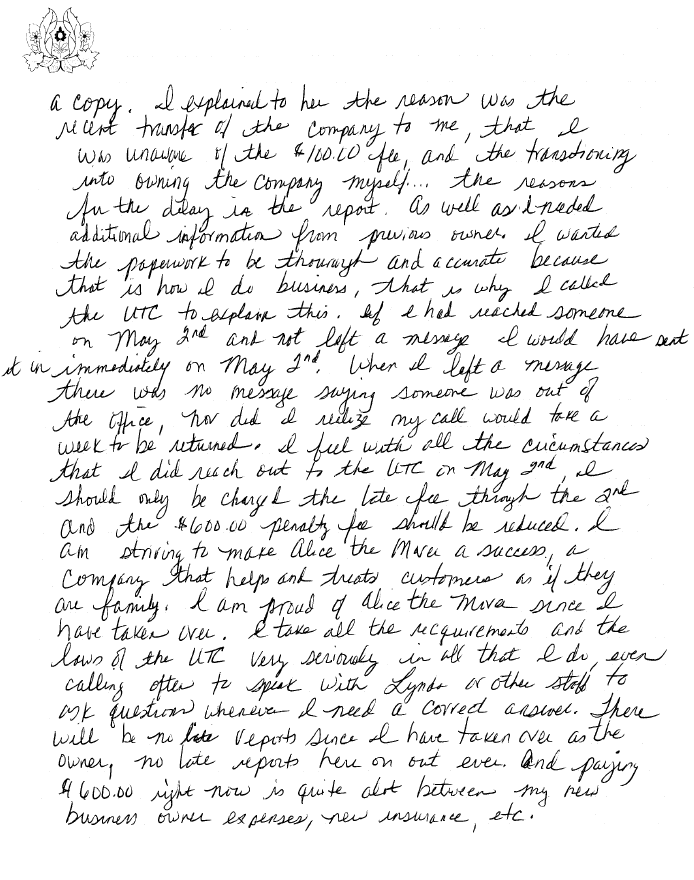 a copy. I explained to her the reason was the
recent transfer of the company to me, that I
was unaware of the $100.00 fee, and the transitioning
into owning the company myself... the reasons
for the delay in the report. As well as I needed
additional information from previous owner. I wanted
the paperwork to be thourough and accurate because
that is how I do business, that is why I called
the UTC to explain this. If I had reached someone
on May 2nd and not left a message I would have sent
it in immediately on May 2nd. When I left a message
there was no message saying someone was out of
the office, nor did I realize my call would take a
week to be returned. I feel with all the circumstances
that I did reach out to the UTC on May 2nd, I
should only be charged the late fee through the 2nd
and the $600.00 penalty fee should be reduced. I
am striving to make Alice the Mover a success, a
company that helps and treats customers as if they
are family. I am proud of Alice the Mover since I
have taken over. I take all the recquirements and the
laws of the UTC very seriously in all that I do, even
calling often to speak with Lynda or other staff to
ask questions whenever I need a correct answer. There
will be no late reports since I have taken over as the
owner, no late reports here on out ever. And paying
$600.00 right now is quite alot between my new
business owner expenses, new insurance, etc.